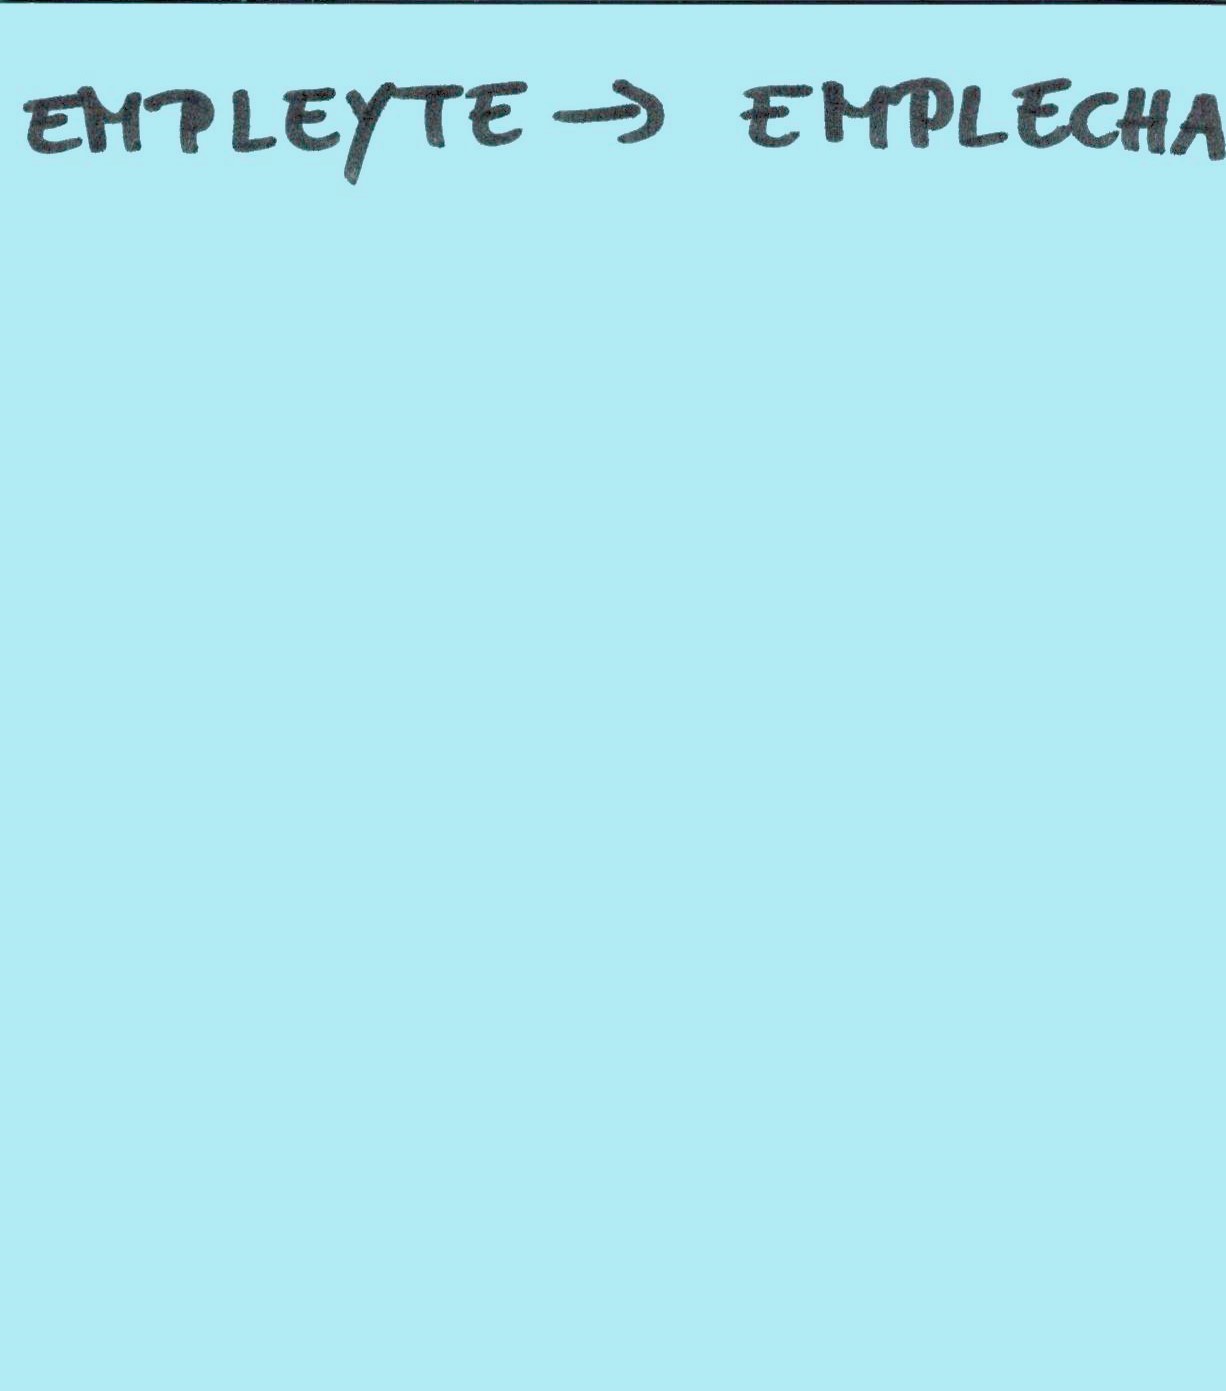 EMPLEYTE → EMPLECHA